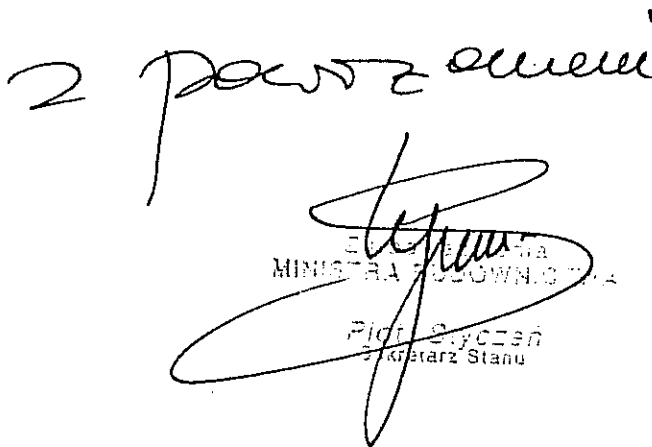 z poważaniem
MINISTRA BUDOWNICTWA
Piotr Styczeń
Sekretarz Stanu